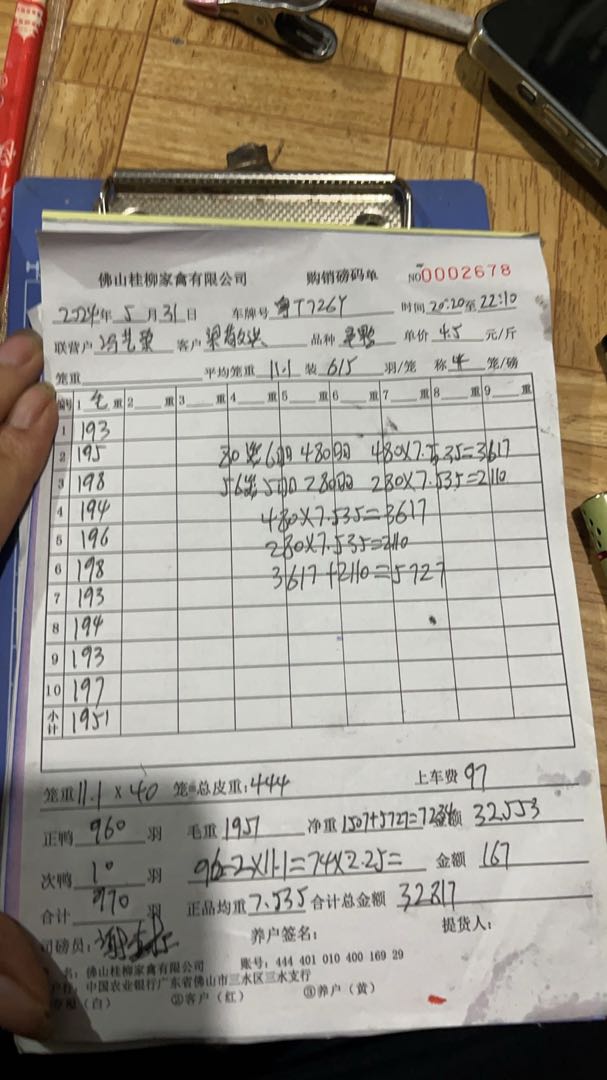 佛山桂柳家禽有限公司 购销磅码单 NO 0002678
2024年 5 月 31 日 车牌号 T726Y 时间 20:20至22:10
联营户 客户 品种 单价 4.5 元/斤
笼重 平均笼重 11.1 装 6/5 羽/笼 称 4 笼/磅
编号 1 毛 重 2 重 3 重 4 重 5 重 6 重 7 重 8 重 9 重
1 193
2 195 80笼6羽 480羽 480×7.535=3617
3 198 56笼5羽 280羽 280×7.535=2110
4 194 480×7.535=3617
5 196 280×7.535=2110
6 198 3617+2110=5727
7 193
8 194
9 193
10 197
小计 1951
笼重 11.1 × 40 笼=总皮重: 444 上车费 97
正鸭 960 羽 毛重 1951 净重 1507+5727=7234 金额 32553
次鸭 10 羽 96-2×11.1=74×2.25= 金额 167
合计 970 羽 正品均重 7.535 合计总金额 32817
司磅员: 养户签名: 提货人:
名: 佛山桂柳家禽有限公司 账号: 444 401 010 400 169 29
户行: 中国农业银行广东省佛山市三水区三水支行
(白) ②客户(红) ③养户(黄)